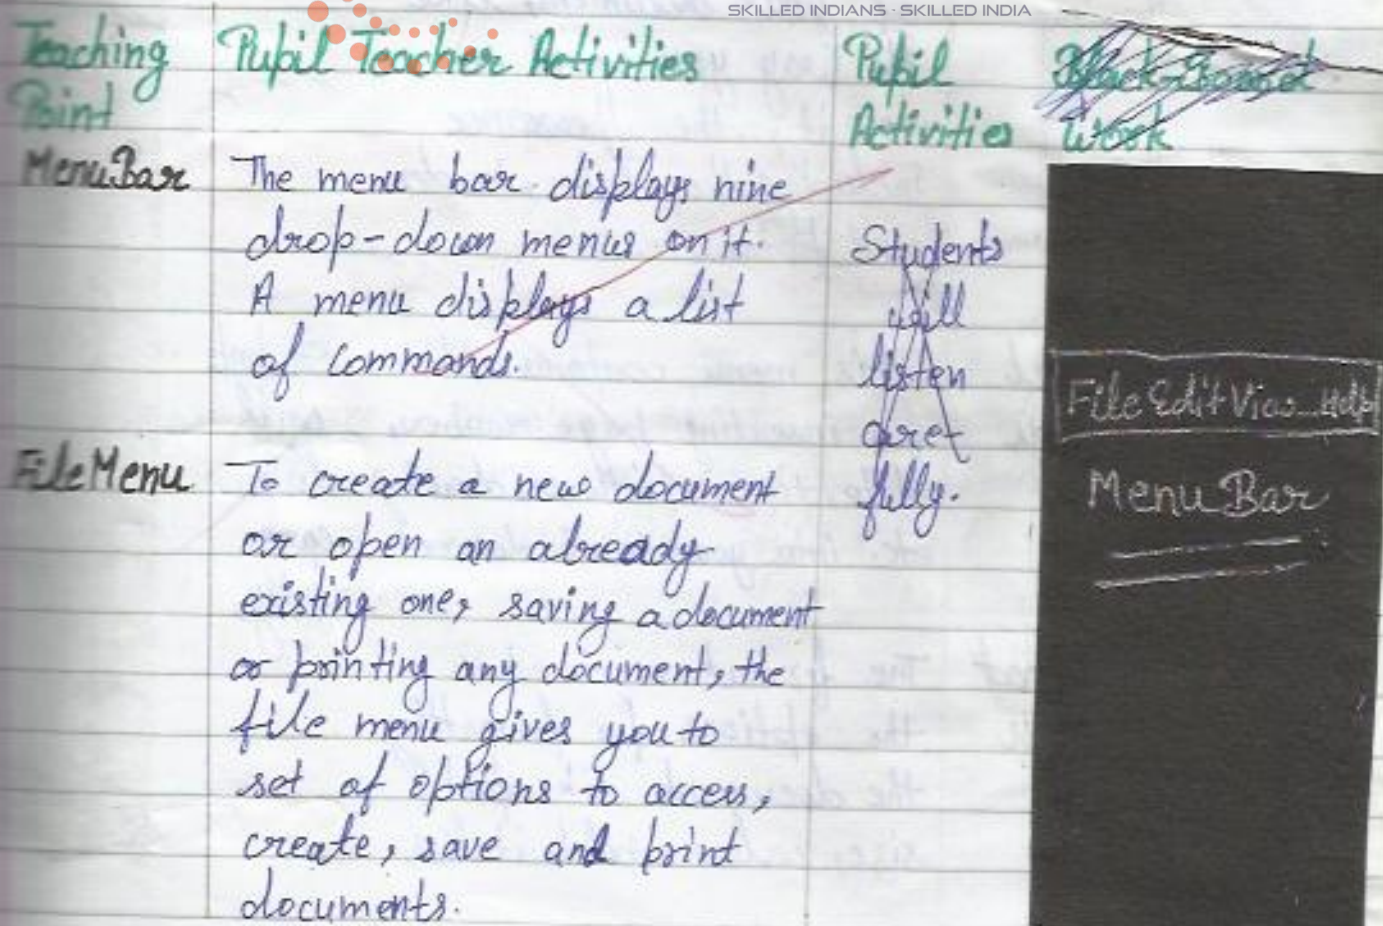 SKILLED INDIANS · SKILLED INDIA
Teaching Point
Pupil Teacher Activities
Pupil Activities
Black-Board Work
Menu Bar
The menu bar displays nine
drop-down menus on it.
A menu displays a list
of commands.
Students
will
listen
care-
fully.
File Edit View...Help
Menu Bar
File Menu
To create a new document
or open an already
existing one, saving a document
or printing any document, the
file menu gives you to
set of options to access,
create, save and print
documents.